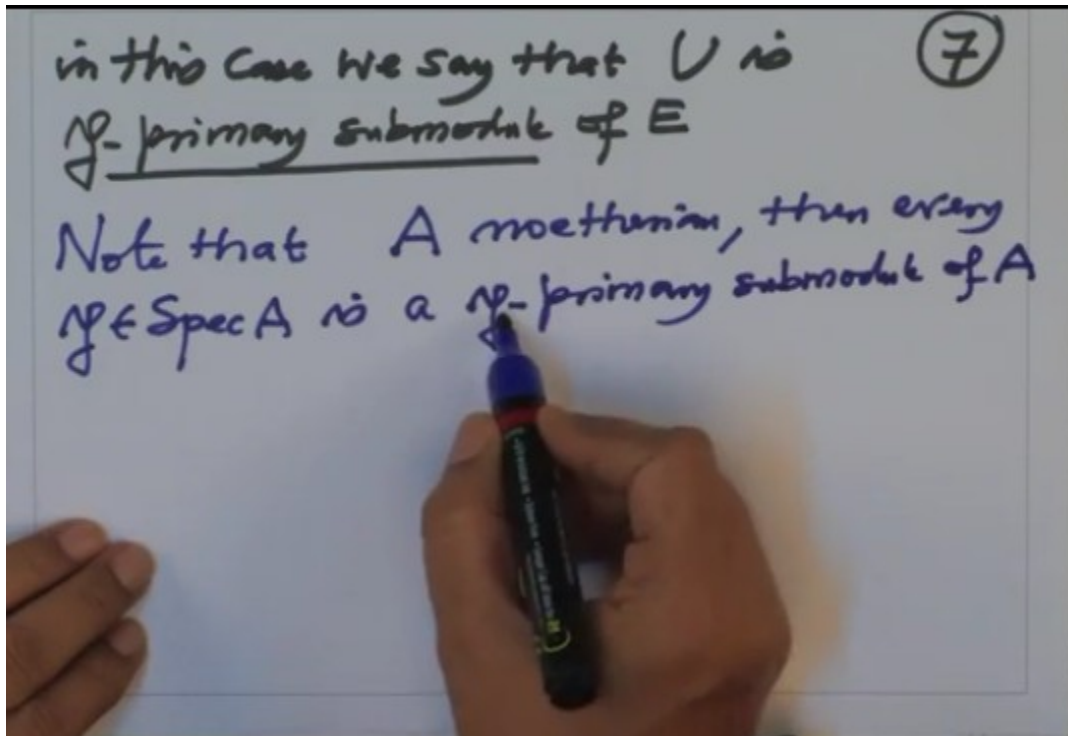 in this case we say that U is ⑦
𝔭-primary submodule of E
Note that A noetherian, then every
𝔭 ∈ Spec A is a 𝔭-primary submodule of A